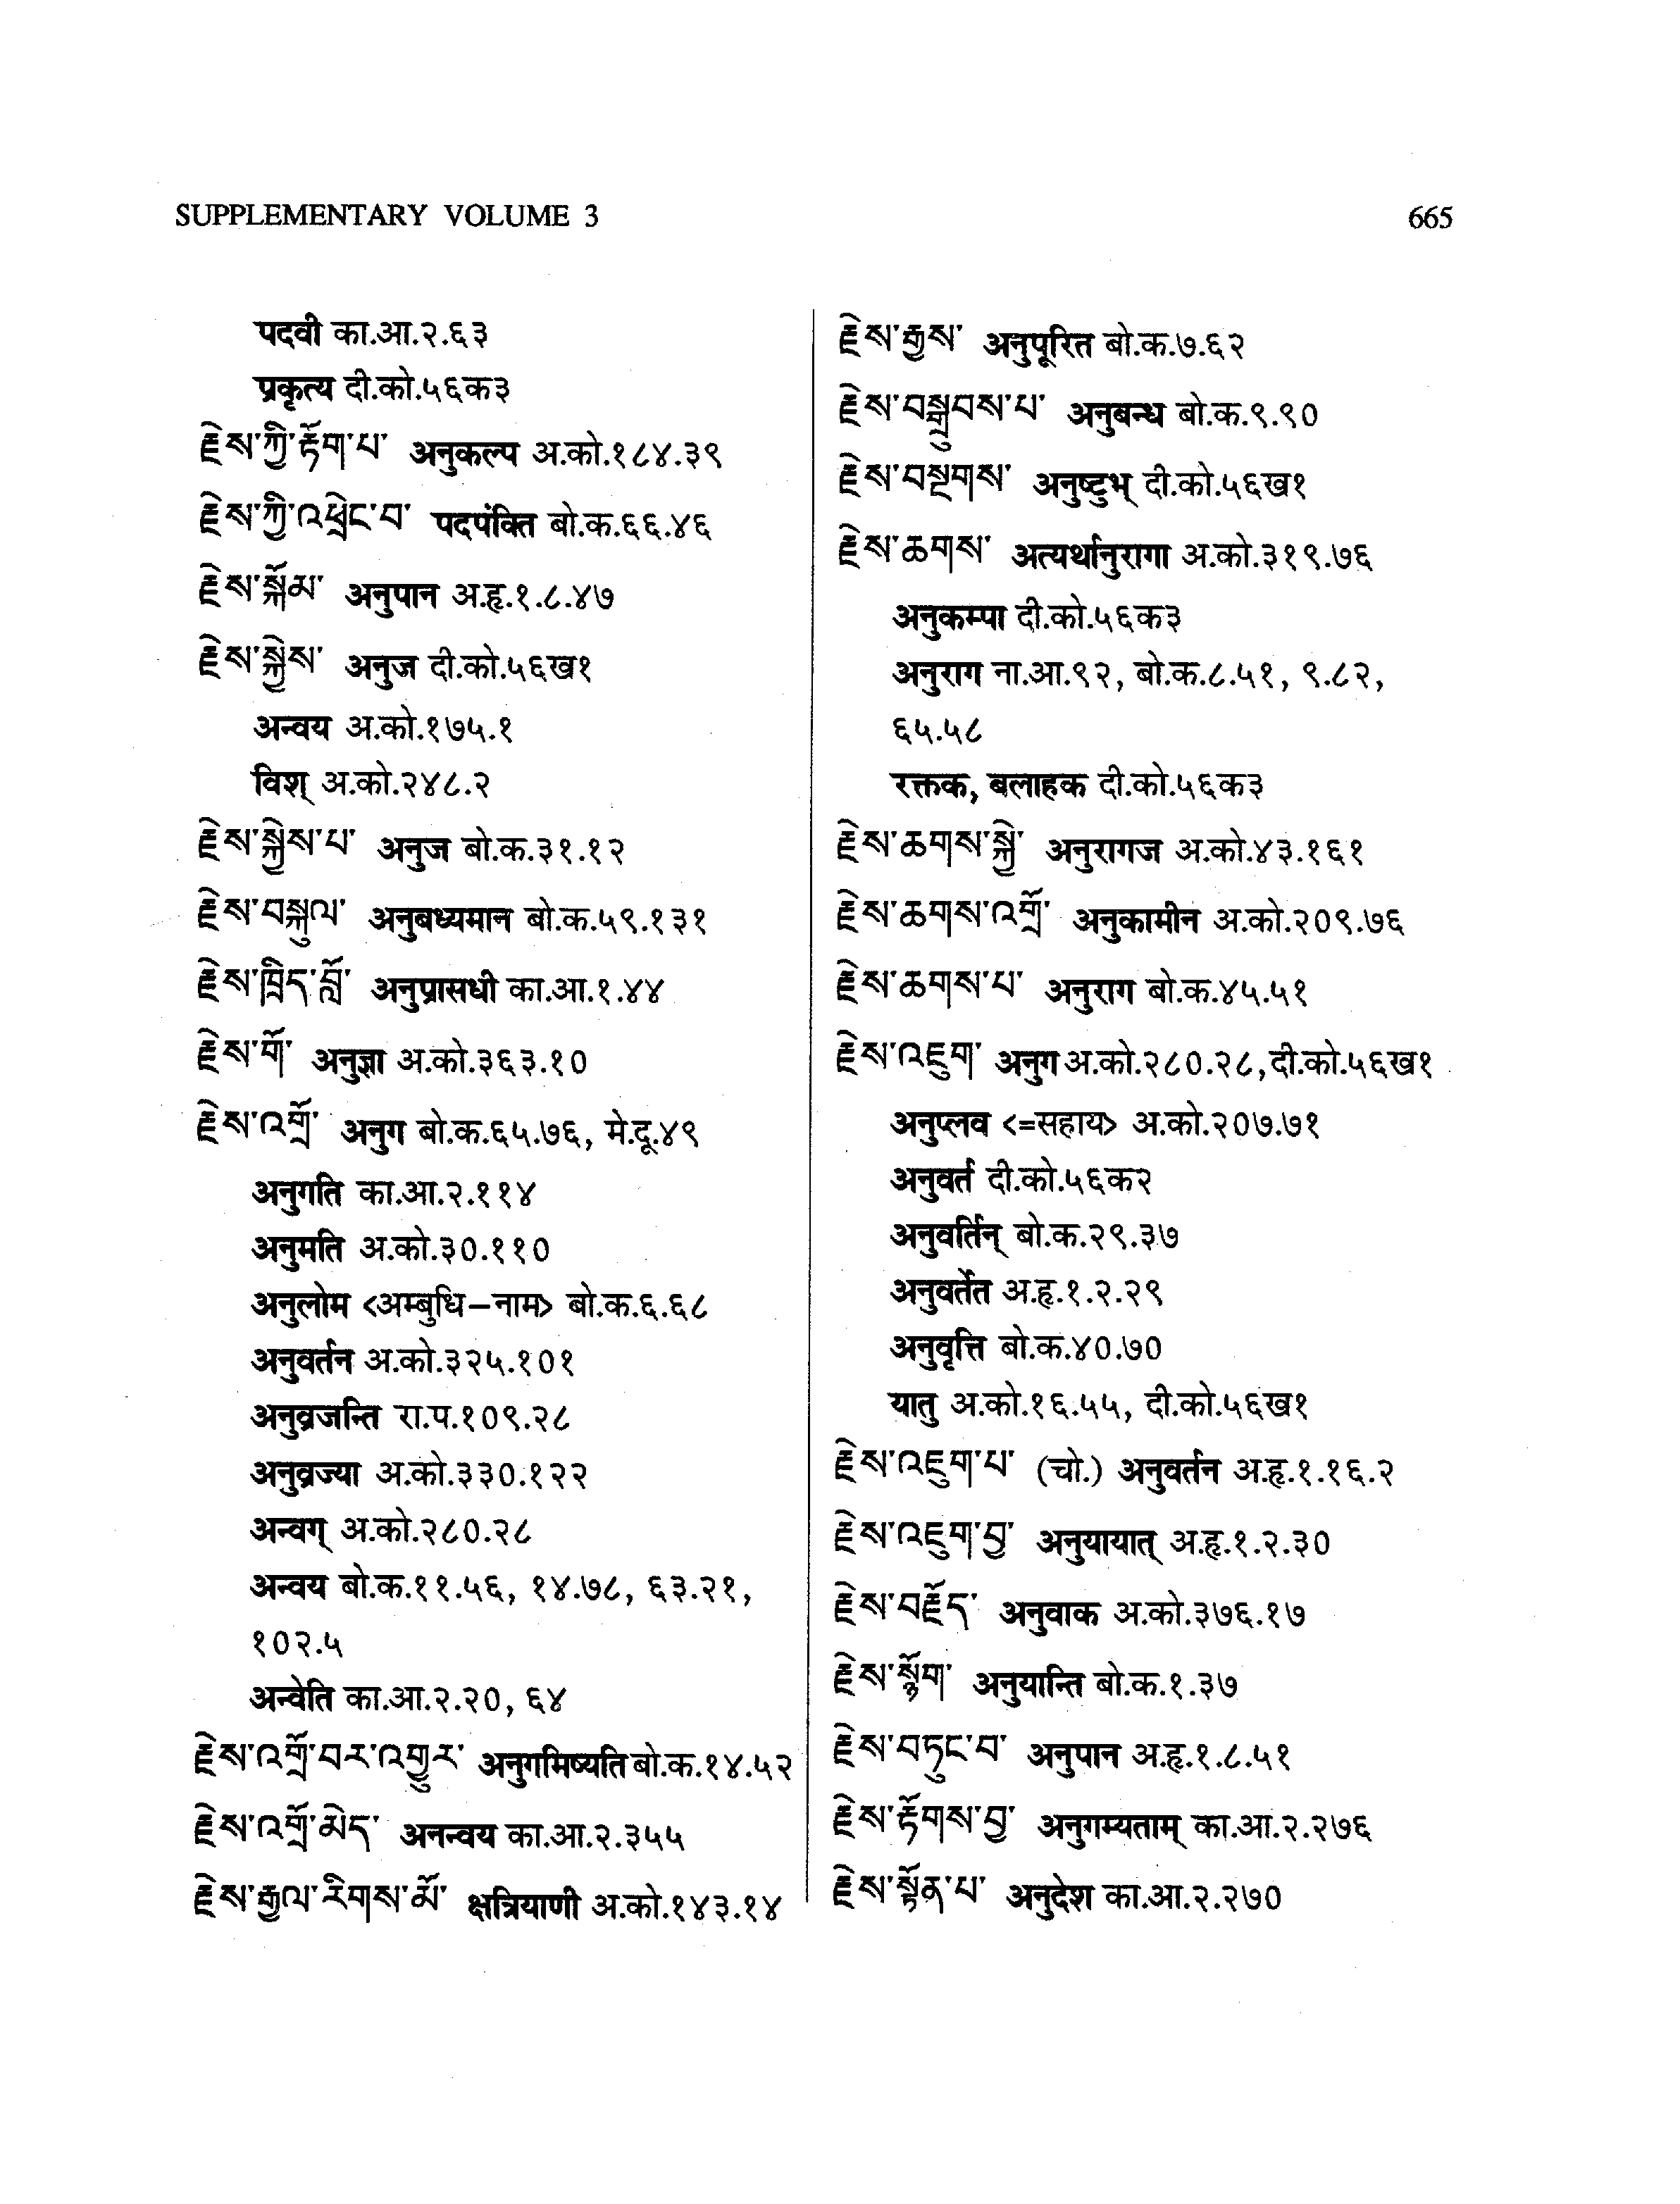 SUPPLEMENTARY VOLUME 3 665
पदवी का.आ.२.६३
प्रकृत्य दी.को.५६क३
རྗེས་ཀྱི་རྟོག་པ་ अनुकल्प अ.को.१८४.३९
རྗེས་ཀྱི་འཕྲེང་བ་ पदपंक्ति बो.क.६६.४६
རྗེས་སྐོམ་ अनुपान अ.हृ.१.८.४७
རྗེས་སྐྱེས་ अनुज दी.को.५६ख१
अन्वय अ.को.१७५.१
विश् अ.को.२४८.२
རྗེས་སྐྱེས་པ་ अनुज बो.क.३१.१२
རྗེས་བསྐུལ་ अनुबध्यमान बो.क.५९.१३१
རྗེས་ཁྲིད་བློ་ अनुप्रासधी का.आ.१.४४
རྗེས་གོ་ अनुज्ञा अ.को.३६३.१०
རྗེས་འགྲོ་ अनुग बो.क.६५.७६, मे.दू.४९
अनुगति का.आ.२.११४
अनुमति अ.को.३०.११०
अनुलोम <अम्बुधि–नाम> बो.क.६.६८
अनुवर्तन अ.को.३२५.१०१
अनुव्रजन्ति रा.प.१०९.२८
अनुव्रज्या अ.को.३३०.१२२
अन्वग् अ.को.२८०.२८
अन्वय बो.क.११.५६, १४.७८, ६३.२१,
१०२.५
अन्वेति का.आ.२.२०, ६४
རྗེས་འགྲོ་བར་འགྱུར་ अनुगमिष्यति बो.क.१४.५२
རྗེས་འགྲོ་མེད་ अनन्वय का.आ.२.३५५
རྗེས་རྒྱལ་རིགས་མོ་ क्षत्रियाणी अ.को.१४३.१४
རྗེས་རྒྱས་ अनुपूरित बो.क.७.६२
རྗེས་བསྒྲུབས་པ་ अनुबन्ध बो.क.९.९०
རྗེས་བསྔགས་ अनुष्टुभ् दी.को.५६ख१
རྗེས་ཆགས་ अत्यर्थानुरागा अ.को.३१९.७६
अनुकम्पा दी.को.५६क३
अनुराग ना.आ.९२, बो.क.८.५१, ९.८२,
६५.५८
रक्तक, बलाहक दी.को.५६क३
རྗེས་ཆགས་སྐྱེ་ अनुरागज अ.को.४३.१६१
རྗེས་ཆགས་འགྲོ་ अनुकामीन अ.को.२०९.७६
རྗེས་ཆགས་པ་ अनुराग बो.क.४५.५१
རྗེས་འཇུག་ अनुग अ.को.२८०.२८,दी.को.५६ख१
अनुप्लव <=सहाय> अ.को.२०७.७१
अनुवर्त दी.को.५६क२
अनुवर्तिन् बो.क.२९.३७
अनुवर्तेत अ.हृ.१.२.२९
अनुवृत्ति बो.क.४०.७०
यातु अ.को.१६.५५, दी.को.५६ख१
རྗེས་འཇུག་པ་ (चो.) अनुवर्तन अ.हृ.१.१६.२
རྗེས་འཇུག་བྱ་ अनुयायात् अ.हृ.१.२.३०
རྗེས་བརྗོད་ अनुवाक अ.को.३७६.१७
རྗེས་སྙོག་ अनुयान्ति बो.क.१.३७
རྗེས་བཏུང་བ་ अनुपान अ.हृ.१.८.५१
རྗེས་རྟོགས་བྱ་ अनुगम्यताम् का.आ.२.२७६
རྗེས་སྟོན་པ་ अनुदेश का.आ.२.२७०